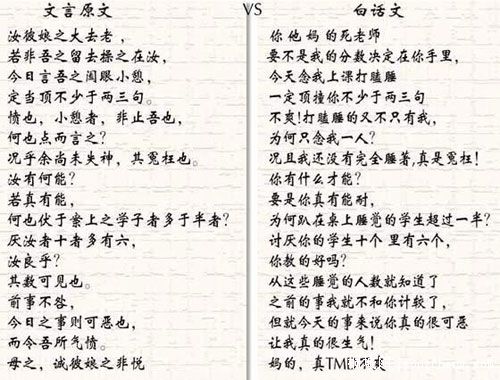 文言原文
VS
白话文
汝彼娘之大去老，
若非吾之留去操之在汝，
今日言吾之阖眼小憩，
定当顶不少于两三句。
愤也，小憩者，非止吾也，
何也点而言之？
况乎余尚未失神，其冤枉也。
汝有何能？
若真有能，
何也伏于案上之学子者多于半者？
厌汝者十者多有六，
汝良乎？
其数可见也。
前事不咎，
今日之事则可恶也，
而令吾所气愤。
母之，诚彼娘之非悦
你他妈的死老师
要不是我的分数决定在你手里，
今天念我上课打瞌睡
一定顶撞你不少于两三句
不爽！打瞌睡的又不只有我，
为何只念我一人？
况且我还没有完全睡著，真是冤枉！
你有什么才能？
要是你真有能耐，
为何趴在桌上睡觉的学生超过一半？
讨厌你的学生十个 里有六个，
你教的好吗？
从这些睡觉的人数就知道了
之前的事我就不和你计较了，
但就今天的事来说你真的很可恶
让我真的很生气！
妈的，真TM